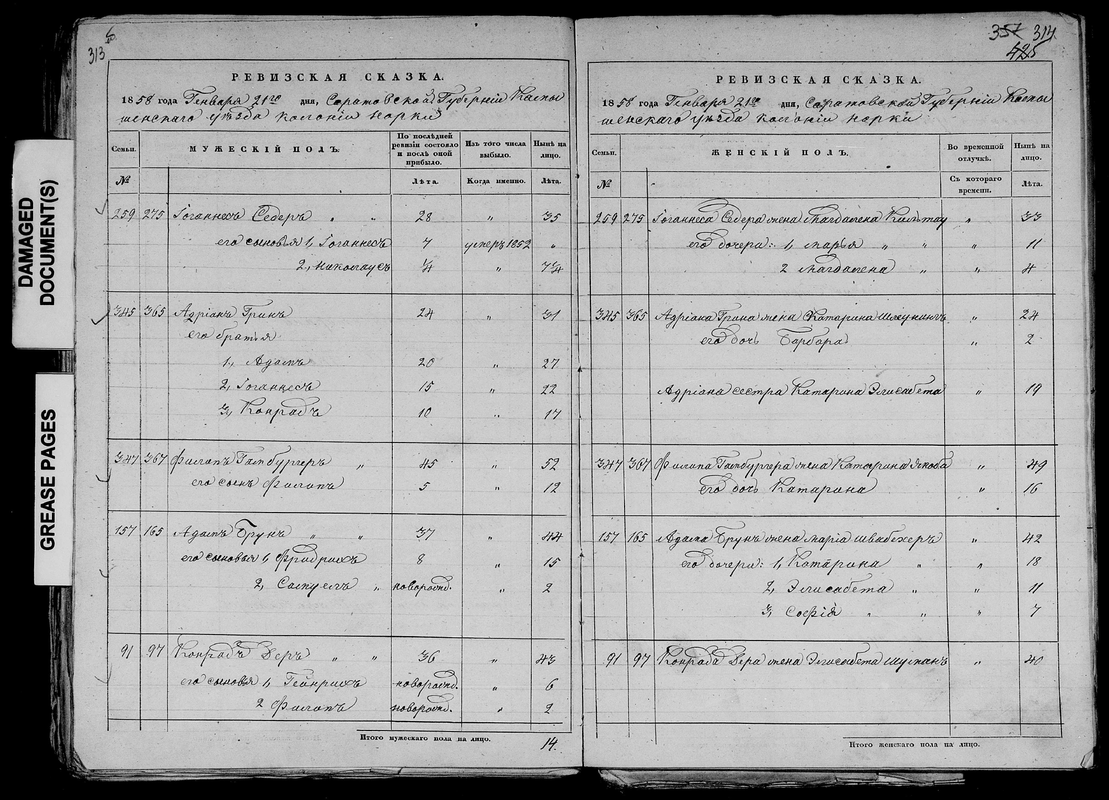 DAMAGED
DOCUMENT(S)
GREASE PAGES
313
РЕВИЗСКАЯ СКАЗКА.
1858 года Генваря 21го дня, Саратовской Губерніи Камы
шенскаго уѣзда колоніи Норки
Семьи. МУЖЕСКІЙ ПОЛЪ. По послѣдней ревизіи состояло и послѣ оной прибыло. Изъ того числа выбыло. Нынѣ на лицо.
№ Лѣта. Когда именно. Лѣта.
259 275 Іоганнесъ Седеръ „ „ 28 „ 35
его сыновья 1, Іоганнесъ 7 умеръ 1852 „
2, Николаусъ 1/4 „ 7 1/4
345 365 Адріанъ Гринъ 24 „ 31
его братья
1, Адамъ 20 „ 27
2, Іоганнесъ 15 „ 22
3, Конрадъ 10 „ 17
347 367 Филипъ Гамбургеръ „ 45 „ 52
его сынъ Филипъ 5 „ 12
157 165 Адамъ Брунъ „ „ 37 „ 44
его сыновья 1, Фридрихъ 8 „ 15
2, Самуелъ „ новорожд. „ 2
91 97 Конрадъ Деръ „ „ 36 „ 43
его сыновья 1, Гейнрихъ новорожд. „ 6
2 Филипъ новорожд. „ 2
Итого мужескаго пола на лицо. 14.
357 314
425
РЕВИЗСКАЯ СКАЗКА.
1858 года Генваря 21го дня, Саратовской Губерніи Камы
шенскаго уѣзда колоніи Норки
Семьи. ЖЕНСКІЙ ПОЛЪ. Во временной отлучкѣ. Нынѣ на лицо.
№ Съ котораго времени. Лѣта.
259 275 Іоганнеса Седера жена Магдалена „ 33
его дочери: 1, Марья „ „ „ 11
2 Магдалена „ „ 4
345 365 Адріана Грина жена Катарина „ 24
его дочь Барбара „ 2
Адріана сестра Катарина Элисабета „ 19
347 367 Филипа Гамбургера жена Катарина Якоба „ 49
его дочь Катарина „ 16
157 165 Адама Брунъ жена Марія Швабехеръ „ 42
его дочери: 1, Катарина „ „ 18
2, Элисабета „ „ 11
3, Софія „ „ „ 7
91 97 Конрада Дера жена Элисабета Шуманъ „ 40
Итого женскаго пола на лицо.